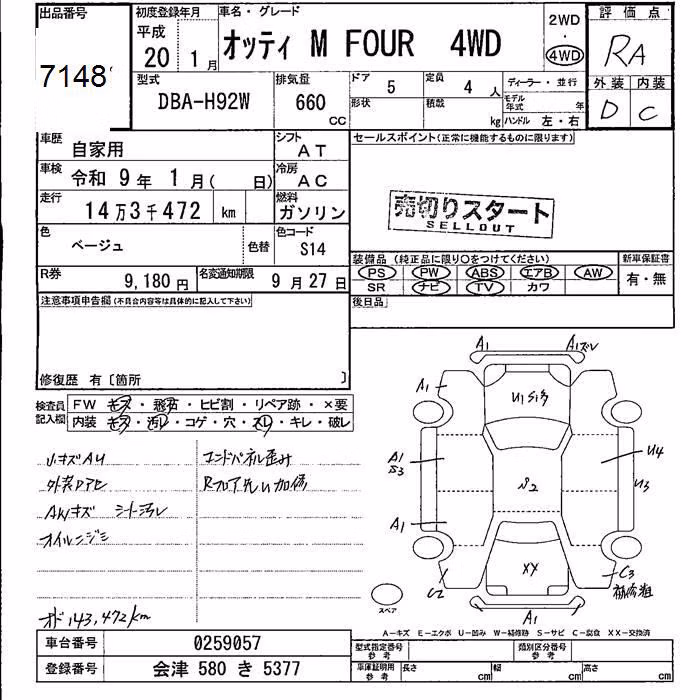 出品番号
7148
初度登録年月
平成
20 1月
車名・グレード
オッティ M FOUR 4WD
2WD
・
4WD
評価点
RA
型式
DBA-H92W
排気量
660
CC
ドア 5
定員 4 人
形状
積載 kg
ディーラー・並行
モデル年式 年
ハンドル 左・右
外装 内装
D C
車歴
自家用
シフト
AT
車検
令和 9年 1月( 日)
冷房
AC
走行
14万3千472 km
燃料
ガソリン
色
ベージュ
色替
色コード
S14
R券
9,180円
名変通知期限
9月27日
セールスポイント(正常に機能するものに限ります)
売切りスタート
SELLOUT
装備品(純正品に限り○をつけてください)
新車保証書
PS PW ABS エアB AW
SR ナビ TV カワ
有・無
後日品
注意事項申告欄(不具合内容等は具体的に記入して下さい)
修復歴 有〔箇所 〕
検査員記入欄
FW キズ・飛石・ヒビ割・リペア跡・×要
内装 キズ・汚レ・コゲ・穴・スレ・キレ・破レ
小キズAU
外装Dアセ
AWキズ シート汚レ
オイルニジミ
オド143,472km
エンドパネル歪み
A1
A1ズレ
A1
U1S1多
A1
S3
U4
U3
A1
XX
C2
C3
A1
スペア
A-キズ E-エクボ U-凹み W-補修跡 S-サビ C-腐食 XX-交換済
車台番号
0259057
登録番号
会津 580 き 5377
型式指定番号
参考
類別区分番号
参考
車庫証明用
参考
長さ cm
幅 cm
高さ cm